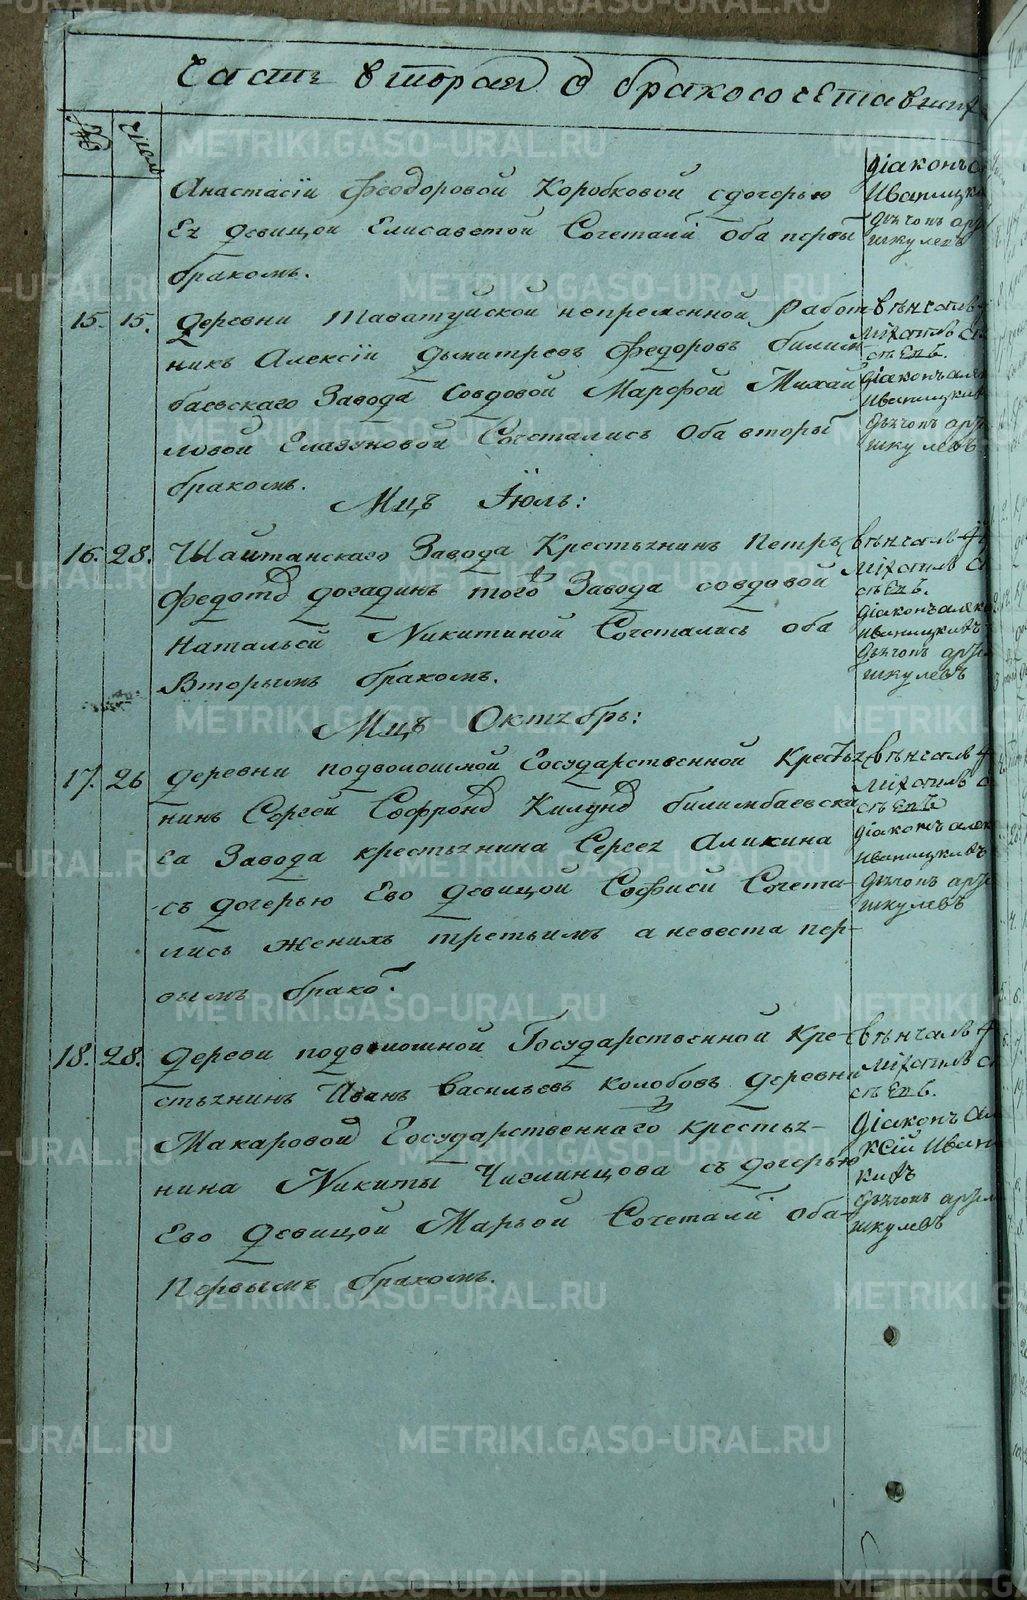 Часть вторая о бракосочетавших
№
Числ
Анастасіи Феодоровой Коробковой сдочерью
Ея девицой Елисаветой Сочетали оба первы
бракомъ.
діаконъ
Иваницк
дьячокъ
шкулевъ
15. 15. деревни Таватуйской непременной работ
никъ Алексіи Дмитревъ Федоровъ билим
баевскаго Завода Совдовой Марфой Михаи
ловой Глазуновой Сочетались Оба вторы
бракомъ.
Венчалъ
Міхаилъ
діаконъ алек
Иваницки
дьячокъ
шкулевъ
Мцъ Іюль:
16. 28. Шайтанскаго Завода Крестьянинъ Петръ
Федото догадинъ того Завода совдовой
Натальей Никитиной Сочетались оба
Вторымъ бракомъ.
венчалъ
Міхаилъ
діаконъ алек
иваницкихъ
дьячокъ
шкулевъ
Мцъ Октябрь:
17. 26 деревни подволошной Государственной Крестья
нинъ Сергей Софроно билимбаевска
го Завода крестьянина Сергея Аликина
съ дочерью Ево девицой Софией Сочета-
лись женихъ третьимъ а невеста пер-
вымъ брако.
венчалъ
Міхаилъ
діаконъ алек
иваницкихъ
дьячокъ
шкулевъ
18. 28. дереви подволошной Государственной кре-
стьянинъ Иванъ васильевъ колобовъ деревни
Макаровой Государственнаго крестья-
нина Никиты Числинцова съ дочерью
Ево девицой Марьой Сочетали оба-
Первымъ бракомъ.
венчалъ
Міхаилъ
діаконъ
ксій Иван
кихъ
дьячокъ
шкулевъ
METRIKI.GASO-URAL.RU